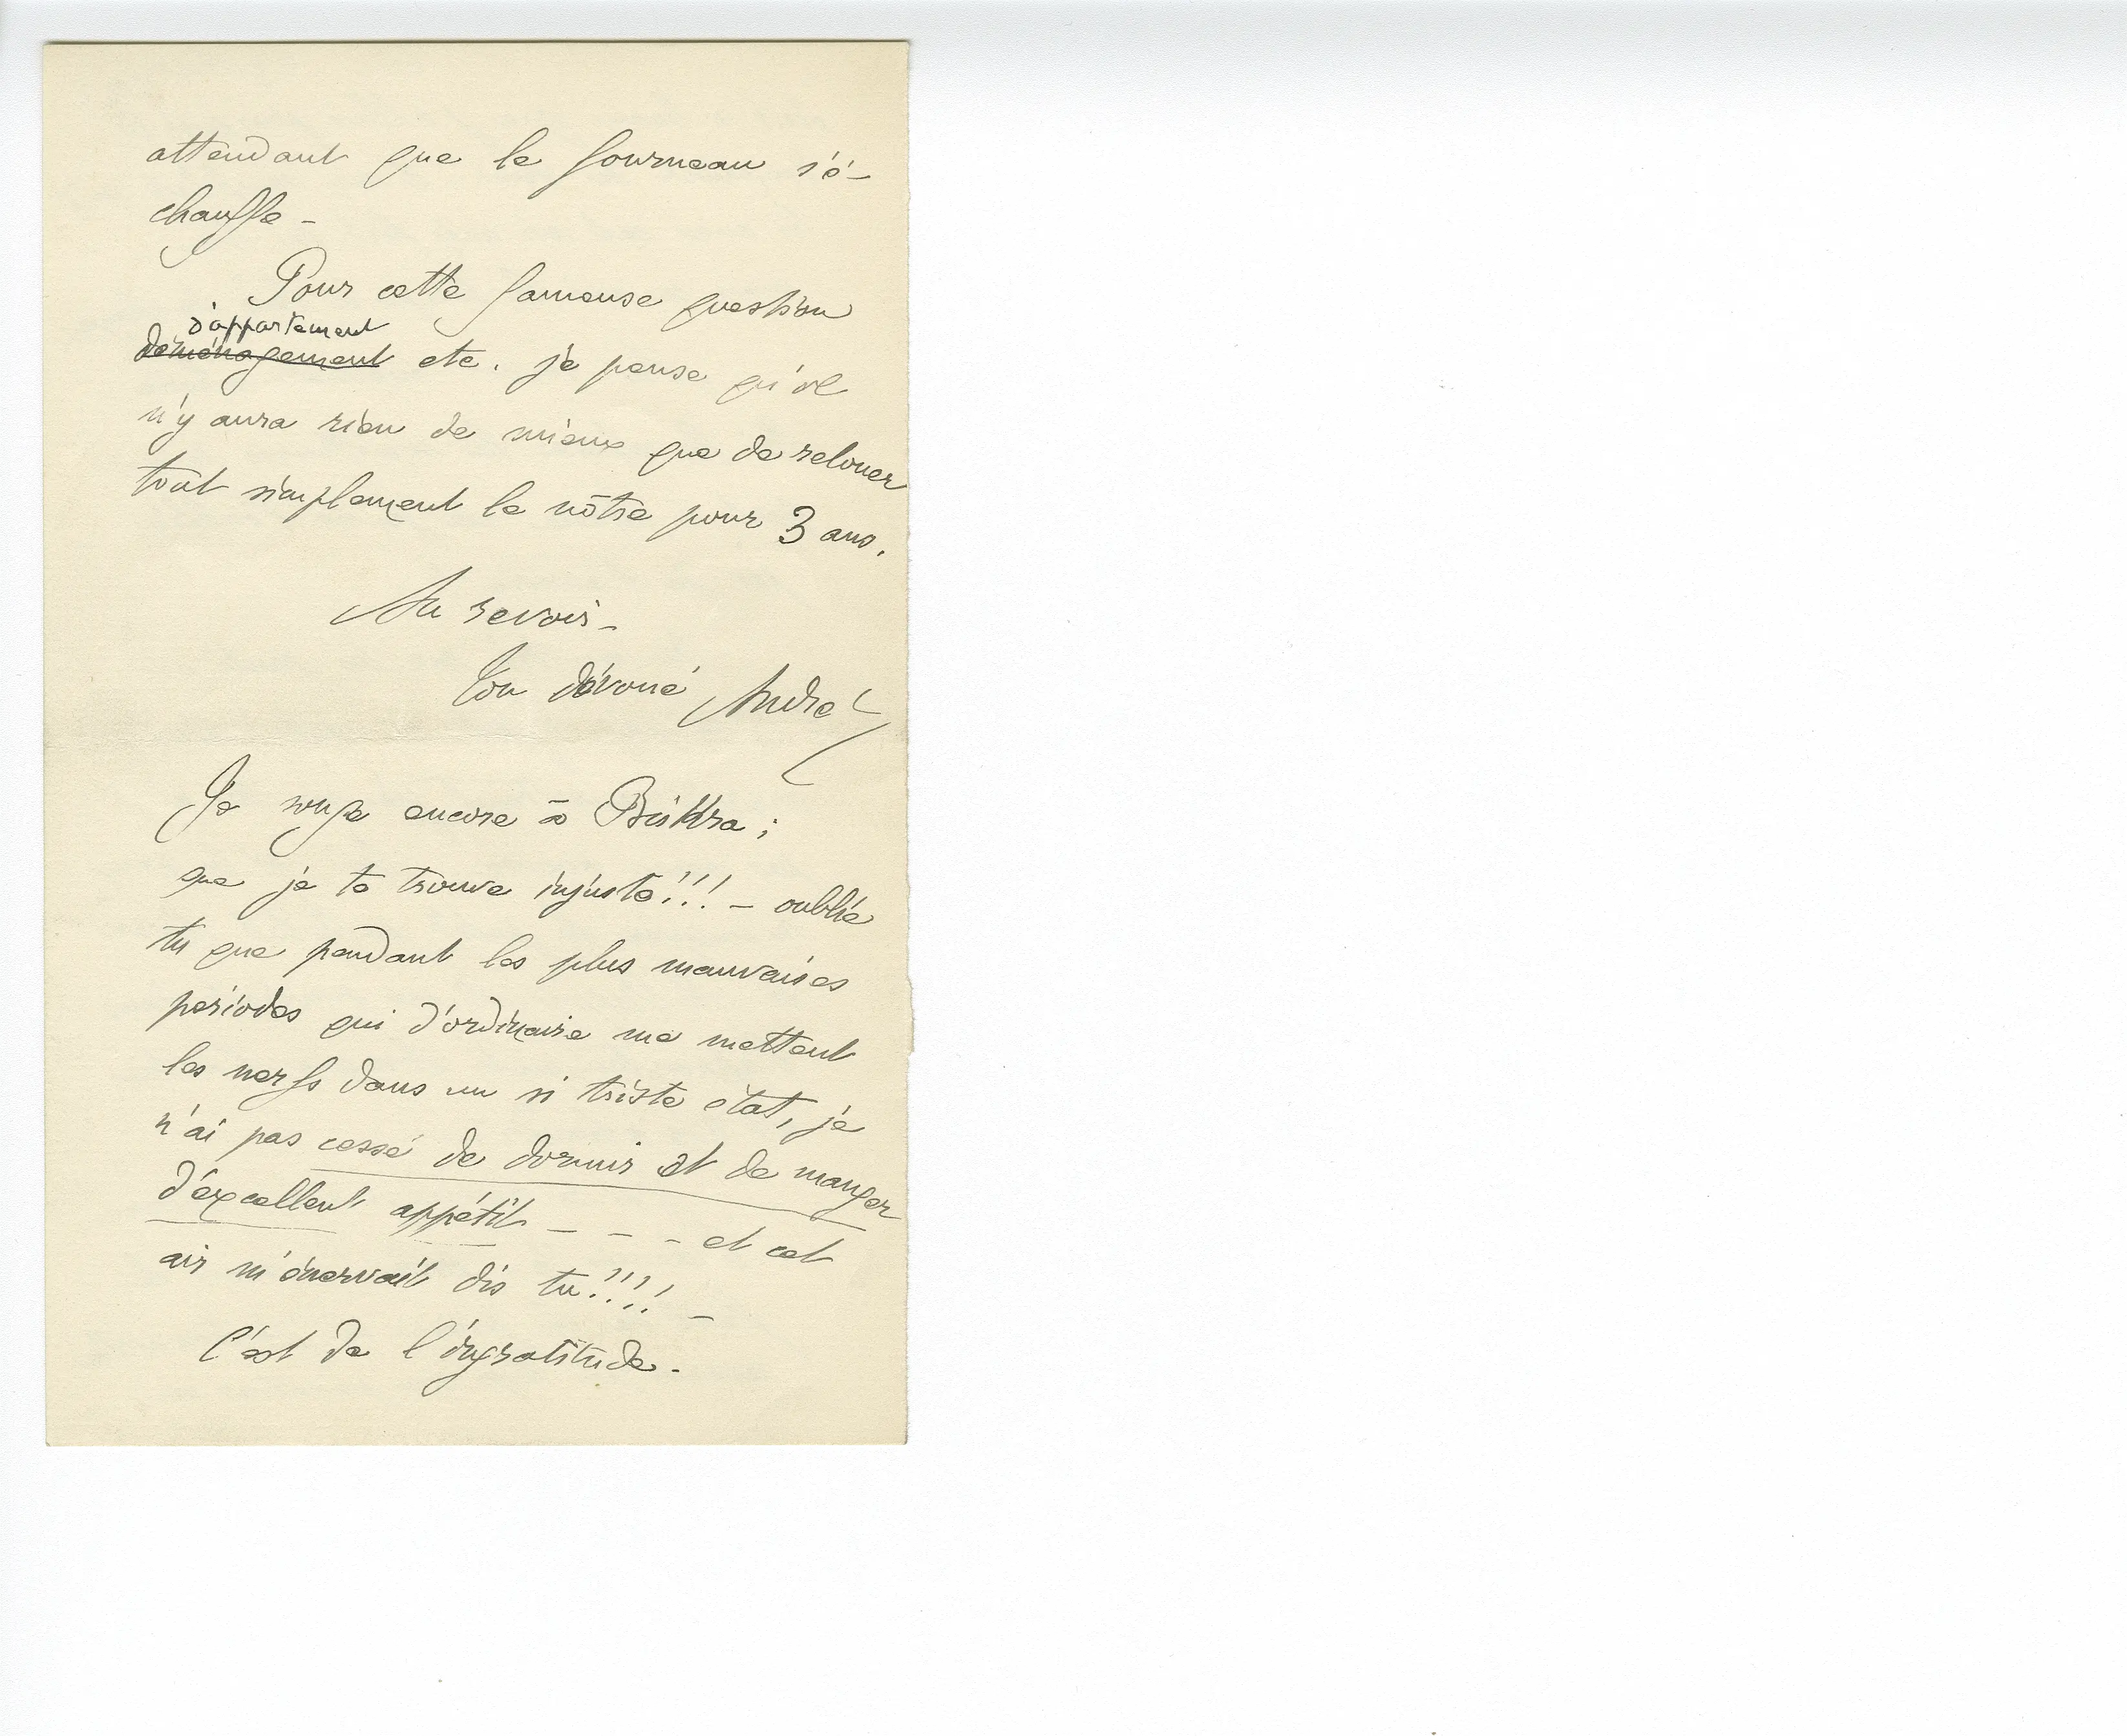 attendant que le fourneau s'é-
chauffe -
Pour cette fameuse question
d'appartement
déménagement etc. je pense qu'il
n'y aura rien de mieux que de relouer
tout simplement le nôtre pour 3 ans.
Au revoir -
Ton dévoué André
Je songe encore à Biskra ;
que je te trouve injuste!!! - oublie
tu que pendant les plus mauvaises
périodes qui d'ordinaire me mettent
les nerfs dans un si triste état, je
n'ai pas cessé de dormir et de manger
d'excellent appétit - - - et cet
air m'énervait dis tu!!!! -
C'est de l'ingratitude -